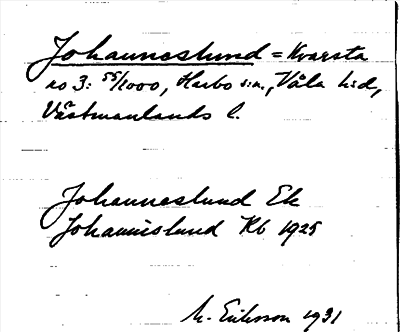 Johanneslund = Kvarsta
no 3: 55/1000, Harbo s:n, Våla hd,
Västmanlands l.
Johanneslund Ek
Johannislund Kb 1925
M. Eriksson 1931